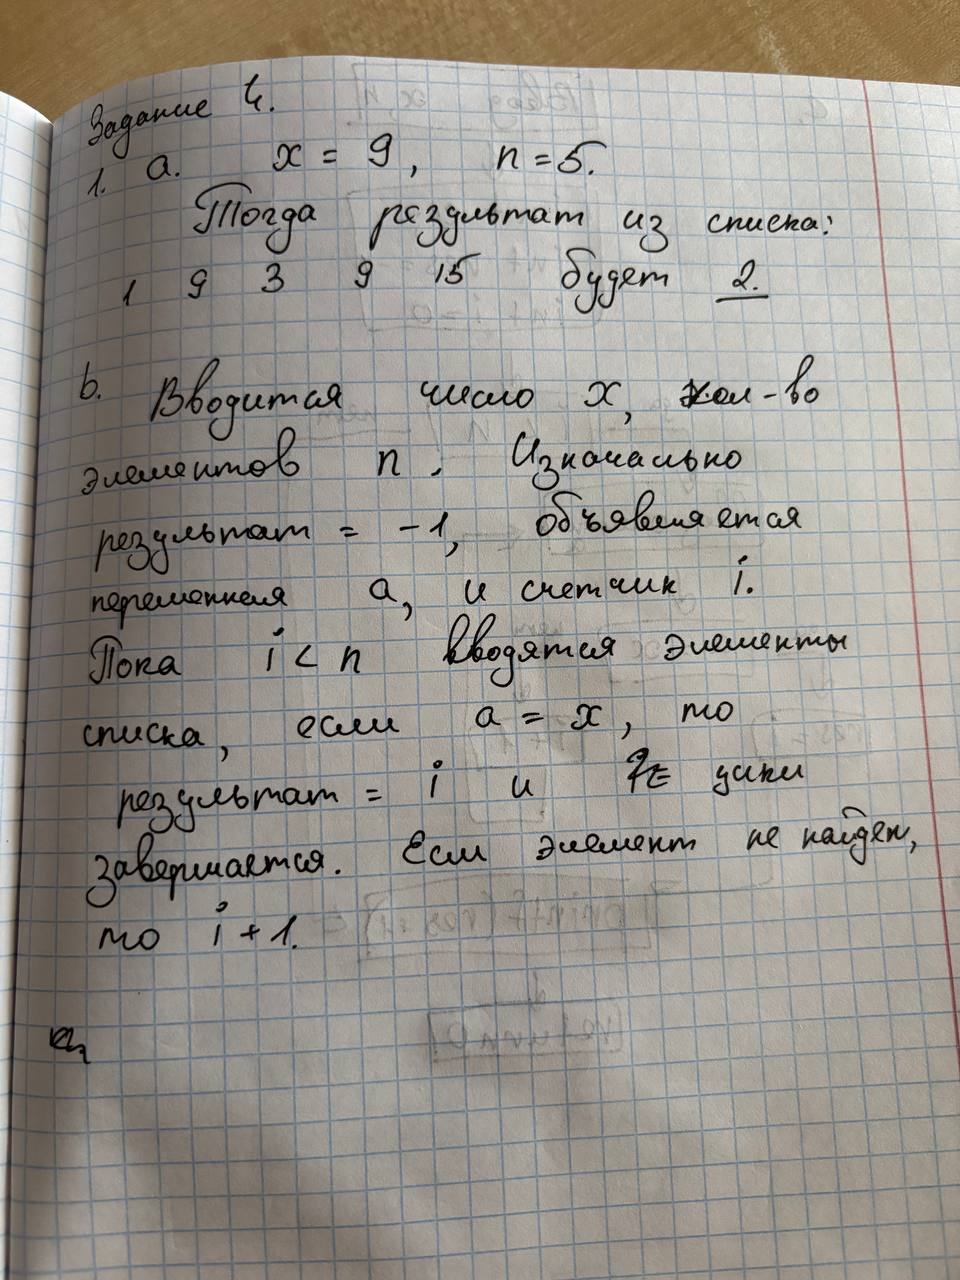 Задание 4.
1. а. x = 9, n = 5.
Тогда результат из списка:
1 9 3 9 15 будет 2.
b. Вводится число x, кол-во
элементов n. Изначально
результат = -1, объявляется
переменная a, и счетчик i.
Пока i < n вводятся элементы
списка, если a = x, то
результат = i и цикл
завершается. Если элемент не найден,
то i + 1.